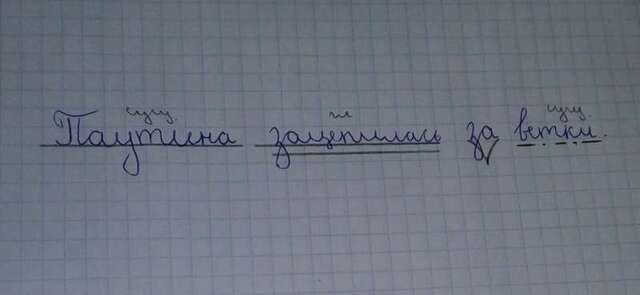 сущ. гл сущ.
Паутина зацепилась за ветки.